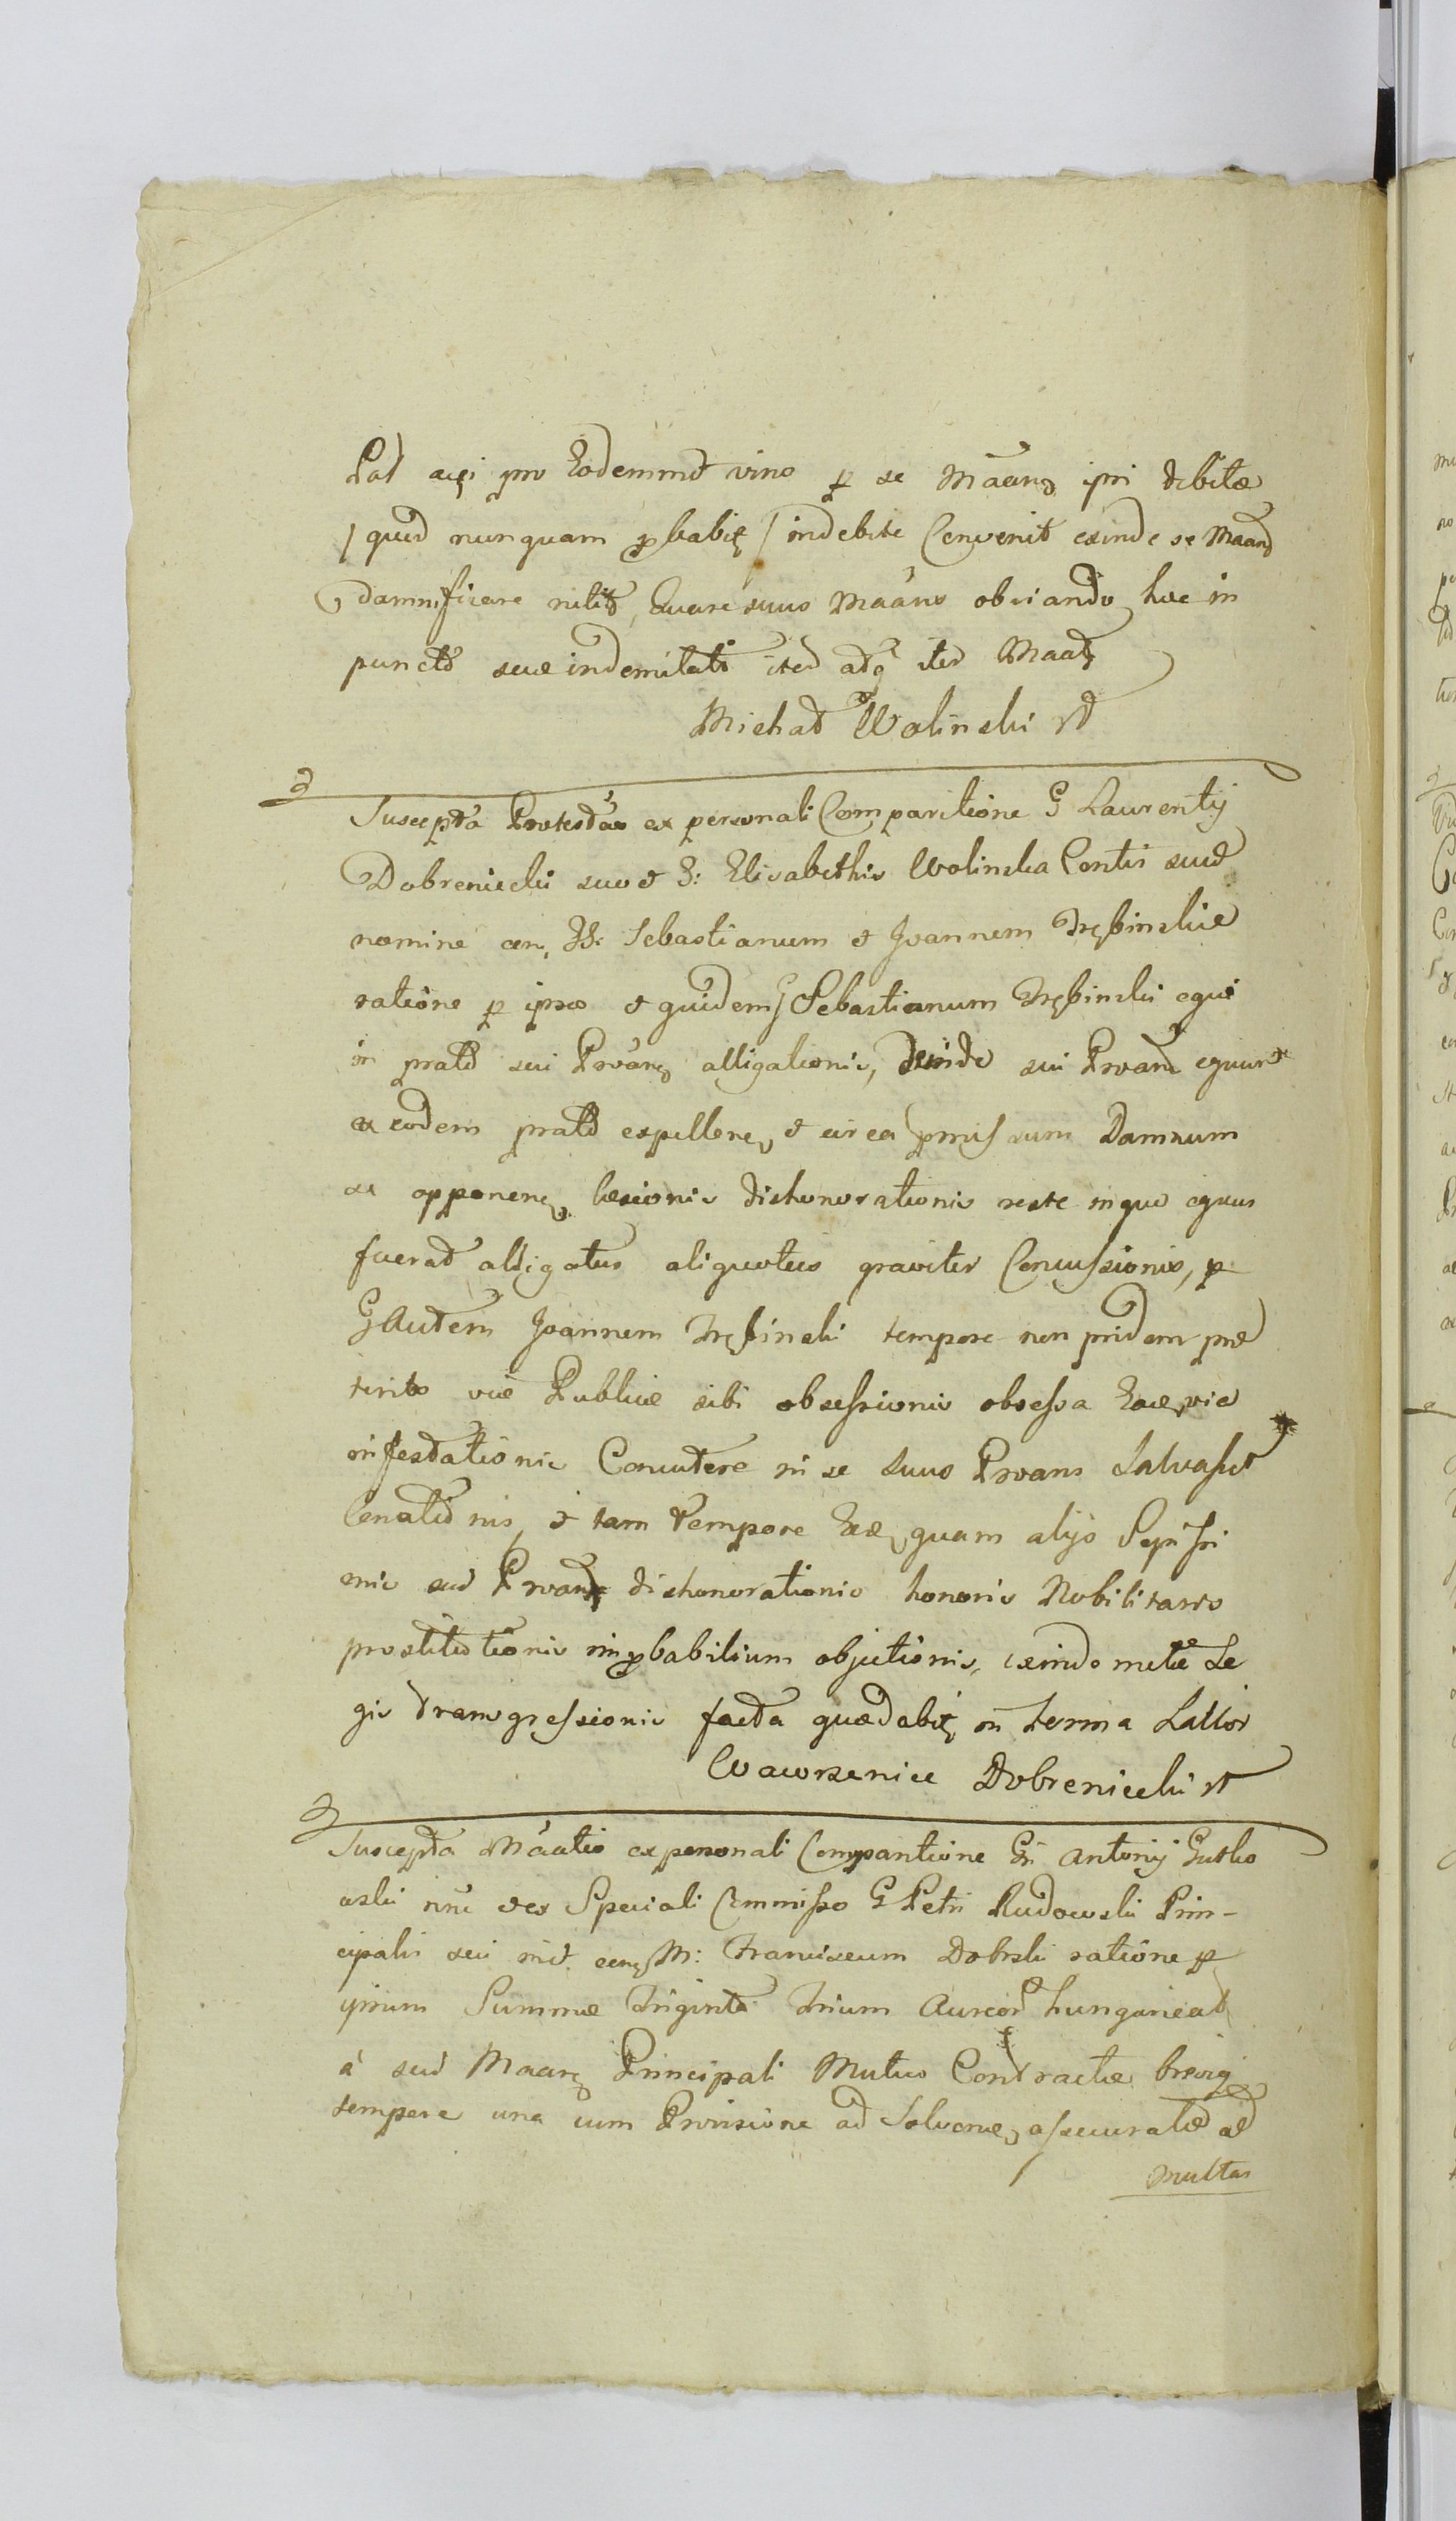 pro Eodemmet vino se Maan ipsi debitæ
quod nunquam pbabit indebite Convenit exinde se Maan
damnificare nitit, Quare suus Maans obviando huic in
puncto suæ indemnitatis iterum Maat
Michał Woliński
Suscepta Protestao ex personali Comparitione G Laurentij
Dobreniecki suo et G: Elisabethis Wolinska Contis suæ
nomine Sebastianum et Joannem Trębinskie
ratione p ipsos et quidem G Sebastianum Trębinski equi
in prato sui Proan alligationis, deinde sui Proan equum
ex eodem prato expellen, et circa pmissum Damnum
se opponen læsionis dishonorationis reste in quo equus
fuerat alligatus aliquoties graviter Concussionis, p
G Autem Joannem Trębinski tempore non pridem præ
terito viæ Publicæ sibi obsessionis obsessa viæ
infestationis Concutere ni se suus Proans Salvasset
Conationis, et tam tempore quam alijs Sepissi
mis sui Proan dishonorationis honoris Nobilitaris
prostitutionis impbabilium objectionis, exinde metæ Le
gis transgressionis facta quæ dabit in termina Lattor
Wawrzeniec Dobreniecki
Suscepta Maatio ex personali Comparitione Gñ Antonij Gutko
wski Speciali Commisso G Petri Rudowski Prin-
cipalis sui Franciscum Dobski ratione p
ipsum Summæ Triginta Trium Aureor hungarical
à suo Maan Principali Mutuo Contractæ brevi
tempore una cum Provisione ad Solven assecuratæ ad
multas